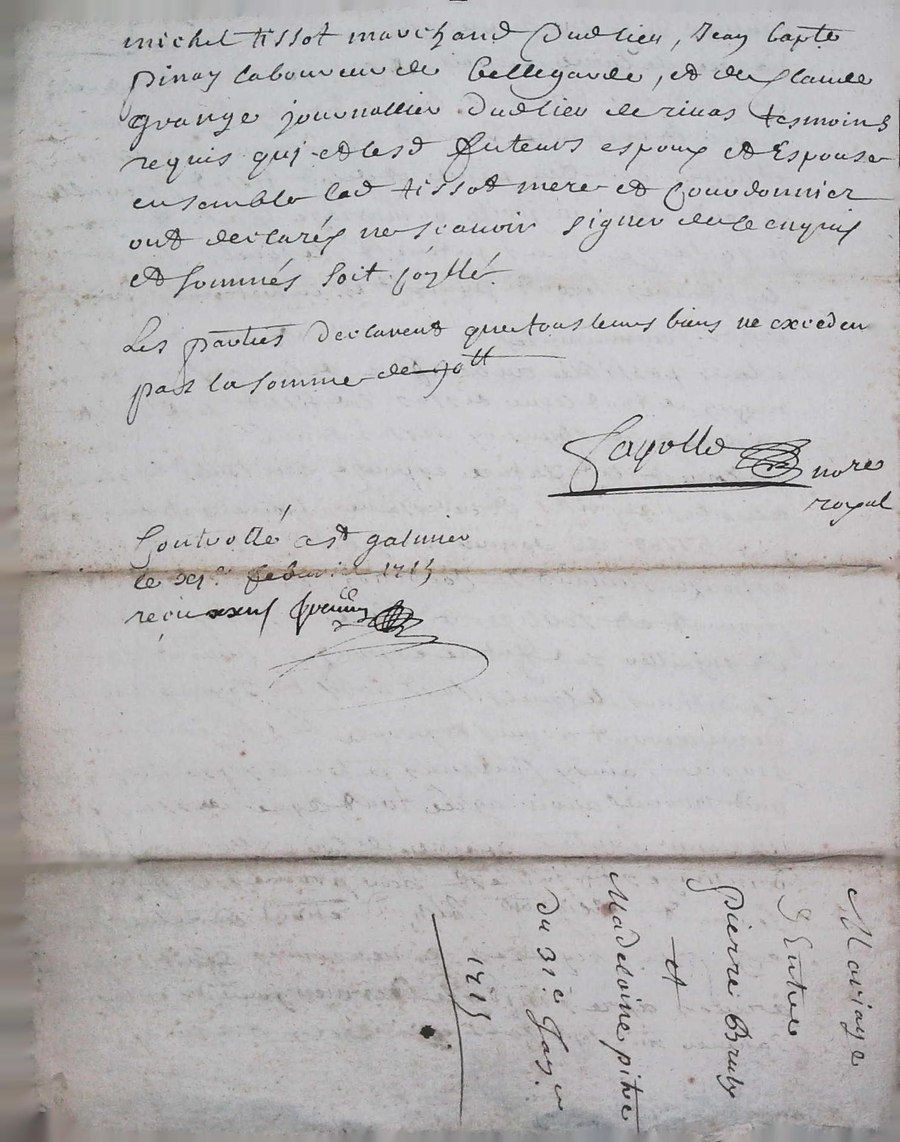 michel tissot marchand dud lieu, Jean bapte
pinay laboureur de bellegarde, et de Claude
grange journallier dud lieu de rivas tesmoins
requis qui et lesd futeurs espoux et Espouse
ensemble lad tissot mere et Courdonnier
ont declarés ne scavoir signer de ce enquis
et sommés soit
Les parties declarent que tous leurs biens ne exceden
pas la somme de 90tt
Fayolle nore
royal
Controllé a st galmier
le febvrier 1715
receu
Mariage
D'Entre
pierre Bruly
et
Madeloine pitre
du 31e Jav.r
1715